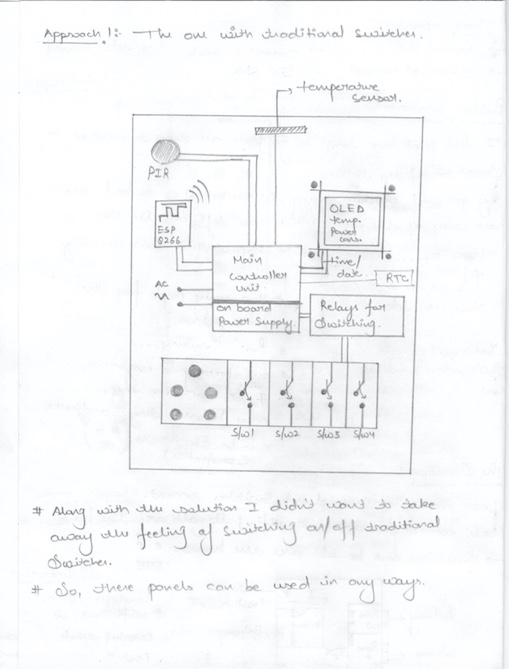 Approach 1:- The one with traditional switches.
temperature
sensor.
PIR
ESP
8266
OLED
temp.
Power
cons.
Main
Controller
unit.
time/
date.
RTC
AC
on board
Power Supply.
Relays for
Switching.
S/W1 S/W2 S/W3 S/W4
# Along with the solution I didn't want to take
away the feeling of switching on/off traditional
Switches.
# So, these panels can be used in any ways.